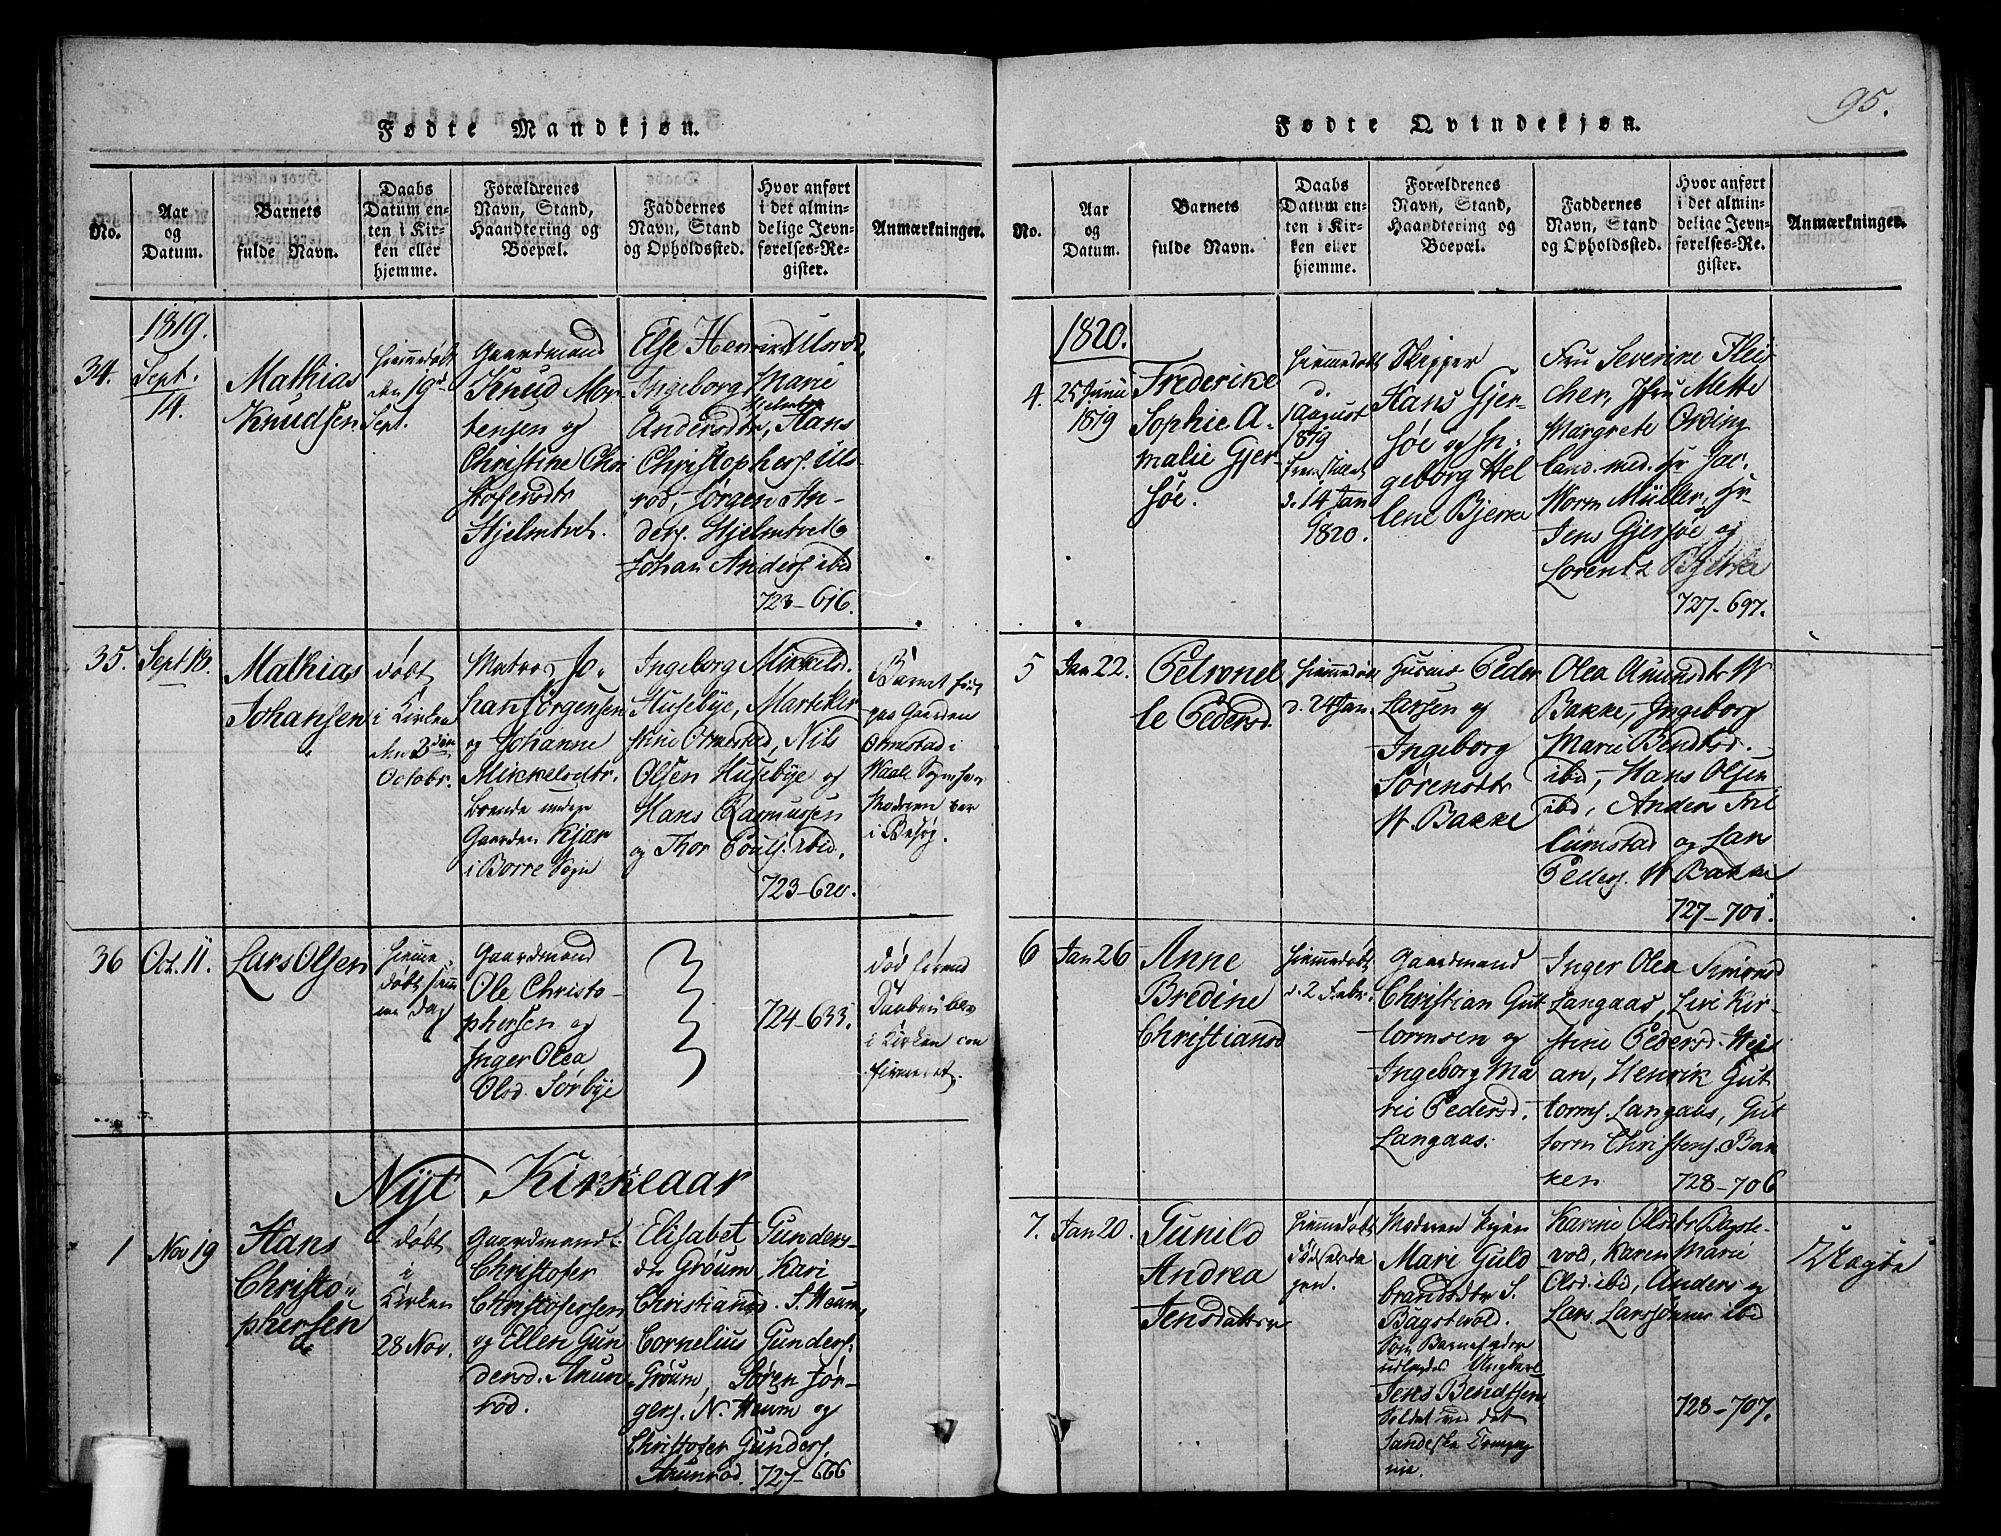 95.
Fødte Mandkjøn.
No.
Aar
og
Datum.
Barnets
fulde Navn.
Daabs
Datum en-
ten i Kir-
ken eller
hjemme.
Forældrenes
Navn, Stand,
Haandtering og
Boepæl.
Faddernes
Navn, Stand
og Opholdssted.
Hvor anført
i det almin-
delige Jevn-
førelses-Re-
gister.
Anmærkninger.
1819.
34.
Sept.
14.
Mathias
Knudsen
Hiemmedøbt
den 19de
Sept.
Gaardmand
Knud Mor-
tensen og
Christine Chri
stofersdtr
Hjelmtvet.
Else Henriks Ulsrod,
Ingeborg Marie
Hjelmtv
Andersdtr, Hans
Christophers. Uls-
rod, Jørgen An-
ders. Hjelmtvet &
Johan Anders. ibid
723-616.
35.
Sept 18.
Mathias
Johansen
døbt
i Kirken
den 3die
Octobr.
Matros Jo-
han Jørgensen
og Johanne
Mikkelsdtr.
boende under
Gaarden Kjær
i Borre Sogn
Ingeborg Mikkelsd.
Husebye, Marte Kir
stine Ormestad, Nils
Olsen Husebye og
Hans Rasmussen
og Thor Pouls. ibid.
723-620.
Barnet født
paa Gaarden
Ormestad i
Vaale Sogn hvor
Moderen var
i Besøg.
36
Oct. 11.
Lars Olsen
Hieme
døbt sam
me Dag
Gaardmand
Ole Christo-
phersen og
Inger Olea
Olsd. Sørbye
724-633.
død førend
Daaben blev
i Kirken con
firmeret.
Nyt Kirkeaar
1
Nov 19
Hans
Christo-
phersen
døbt
i
Kirken
28 Nov.
Gaardmand
Christofer
Christofersen
og Ellen Gun
dersd. Arun
rød.
Elisabet Gunders-
dr Grøum Kari
Christiansd. S. Heum,
Cornelius Gunders.
Grøum, Søren Jør-
gers. N. Heum og
Christofer Gunders.
Arunrød. 727-666
Fødte Qvindekjøn.
No.
Aar
og
Datum.
Barnets
fulde Navn.
Daabs
Datum en-
ten i Kir-
ken eller
hjemme.
Forældrenes
Navn, Stand,
Haandtering og
Boepæl.
Faddernes
Navn, Stand
og Opholdssted.
Hvor anført
i det almin-
delige Jevn-
førelses-Re-
gister.
Anmærkninger.
1820.
4.
25 Junii
1819
Frederike
Sophie A-
malie Gjer-
søe.
Hiemmedøbt
d.
1 August
1819
Fremstillet
d. 14 Jan
1820.
Skipper
Hans Gjer-
søe og In-
geborg Hel
lene Bjerke
Fru Severine Flei
cher, Jfru Mette
Margrete Ording
land. med. Hr Jac.
Worm Müller, Hr
Jens Gjersøe og
Lorentz Bjerke
727-697.
5
Jan 22.
Petronel
le Pedersd
Hiemmedøbt
d. 24 Jan.
Huusmd Peder
Larsen og
Ingeborg
Sørensdtr
N. Bakke
Olea Amundsdtr N
Bakke, Ingeborg
Marie Bendtsd.
ibid, Hans Olsen
ibd, Anders Fril
lumstad og Lars
Peders. N Bakke
727-701.
6
Jan 26
Anne
Bredine
Christiansd
Hiemmedøbt
d. 2 Febr.
Gaardmand
Christian Gut
tormsen og
Ingeborg Ma
rie Pedersd.
Langaas.
Inger Olea Simonsd
Langaas, Live Kir-
stine Pedersd.
an, Henrik Gut
torms. Langaas, Gut
torm Christens. Bak
ken
728-706
7.
Jan 20.
Gunild
Andrea
Jensdatter
Hiemmedøbt
Fødselsda
gen.
Moderen Pigen
Mari Guld
brandsdtr S.
Bagstevold.
Som Barnefader
udlagdes Ungkarl
Jens Bendtsen
Soldat ved det
Sandeske Compag
nie.
Karine Olsdtr Bagste-
vod, Karen Marie
Olsd. ibd, Anders og
Lars Larssønner ibid
728-707.
Uægte